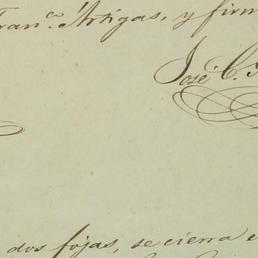 Fran.co Artigas, y firm
José C.
dos fojas, se cierra e